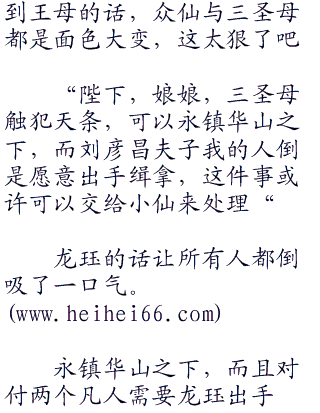 到王母的话，众仙与三圣母
都是面色大变，这太狠了吧
“陛下，娘娘，三圣母
触犯天条，可以永镇华山之
下，而刘彦昌夫子我的人倒
是愿意出手缉拿，这件事或
许可以交给小仙来处理“
龙珏的话让所有人都倒
吸了一口气。
(www.heihei66.com)
永镇华山之下，而且对
付两个凡人需要龙珏出手